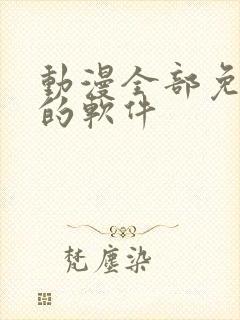 動漫全部免
的軟件
梵塵染